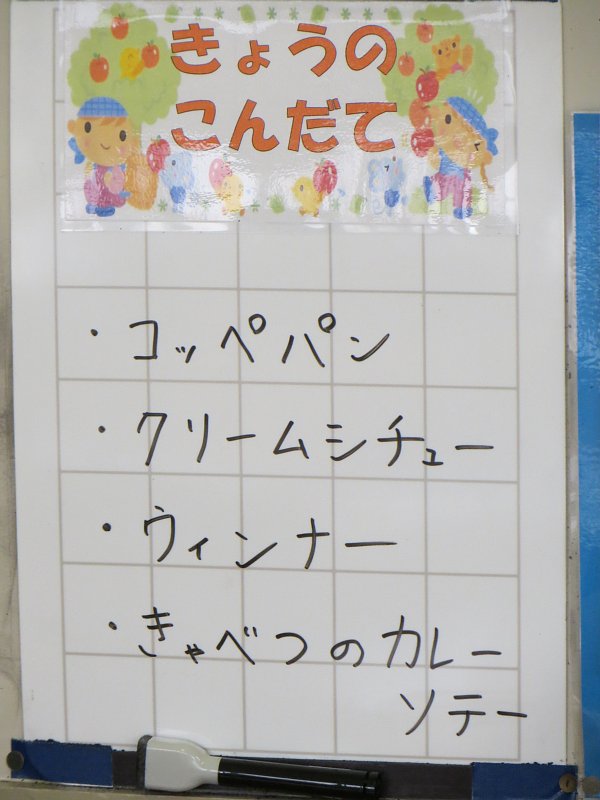 きょうの
こんだて
・コッペパン
・クリームシチュー
・ウィンナー
・きゃべつのカレー
ソテー